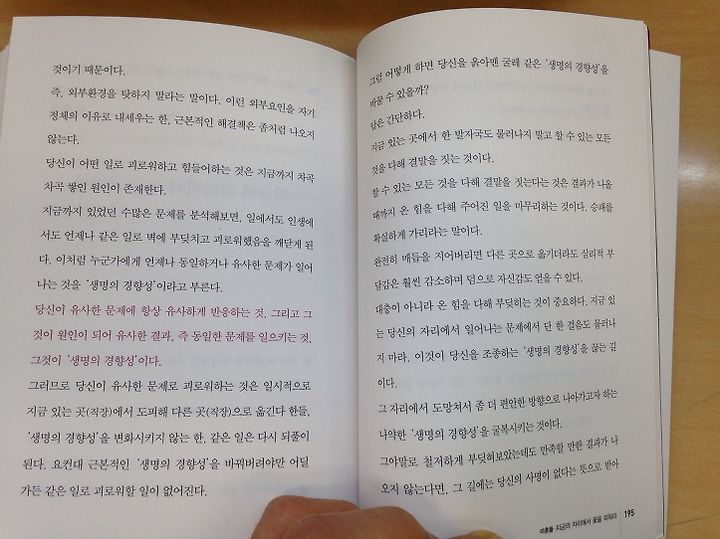 것이기 때문이다.
즉, 외부환경을 탓하지 말라는 말이다. 이런 외부요인을 자기
정체의 이유로 내세우는 한, 근본적인 해결책은 좀처럼 나오지
않는다.
당신이 어떤 일로 괴로워하고 힘들어하는 것은 지금까지 차곡
차곡 쌓인 원인이 존재한다.
지금까지 있었던 수많은 문제를 분석해보면, 일에서도 인생에
서도 언제나 같은 일로 벽에 부딪치고 괴로워했음을 깨닫게 된
다. 이처럼 누군가에게 언제나 동일하거나 유사한 문제가 일어
나는 것을 ‘생명의 경향성’이라고 부른다.
당신이 유사한 문제에 항상 유사하게 반응하는 것, 그리고 그
것이 원인이 되어 유사한 결과, 즉 동일한 문제를 일으키는 것,
그것이 ‘생명의 경향성’이다.
그러므로 당신이 유사한 문제로 괴로워하는 것은 일시적으로
지금 있는 곳(직장)에서 도피해 다른 곳(직장)으로 옮긴다 한들,
‘생명의 경향성’을 변화시키지 않는 한, 같은 일은 다시 되풀이
된다. 요컨대 근본적인 ‘생명의 경향성’을 바꿔버려야만 어딜
가든 같은 일로 괴로워할 일이 없어진다.
그럼 어떻게 하면 당신을 옭아맨 굴레 같은 ‘생명의 경향성’을
바꿀 수 있을까?
답은 간단하다.
지금 있는 곳에서 한 발자국도 물러나지 말고 할 수 있는 모든
것을 다해 결말을 짓는 것이다.
할 수 있는 모든 것을 다해 결말을 짓는다는 것은 결과가 나올
때까지 온 힘을 다해 주어진 일을 마무리하는 것이다. 승패를
확실하게 가리라는 말이다.
완전히 매듭을 지어버리면 다른 곳으로 옮기더라도 심리적 부
담감은 훨씬 감소하며 덤으로 자신감도 얻을 수 있다.
대충이 아니라 온 힘을 다해 부딪히는 것이 중요하다. 지금 있
는 당신의 자리에서 일어나는 문제에서 단 한 걸음도 물러나
지 마라. 이것이 당신을 조종하는 ‘생명의 경향성’을 끊는 길
이다.
그 자리에서 도망쳐서 좀 더 편안한 방향으로 나아가고자 하는
나약한 ‘생명의 경향성’을 굴복시키는 것이다.
그야말로 철저하게 부딪혀보았는데도 만족할 만한 결과가 나
오지 않는다면, 그 길에는 당신의 사명이 없다는 뜻으로 받아
지금의 자리에서 꽃을 피워라 195